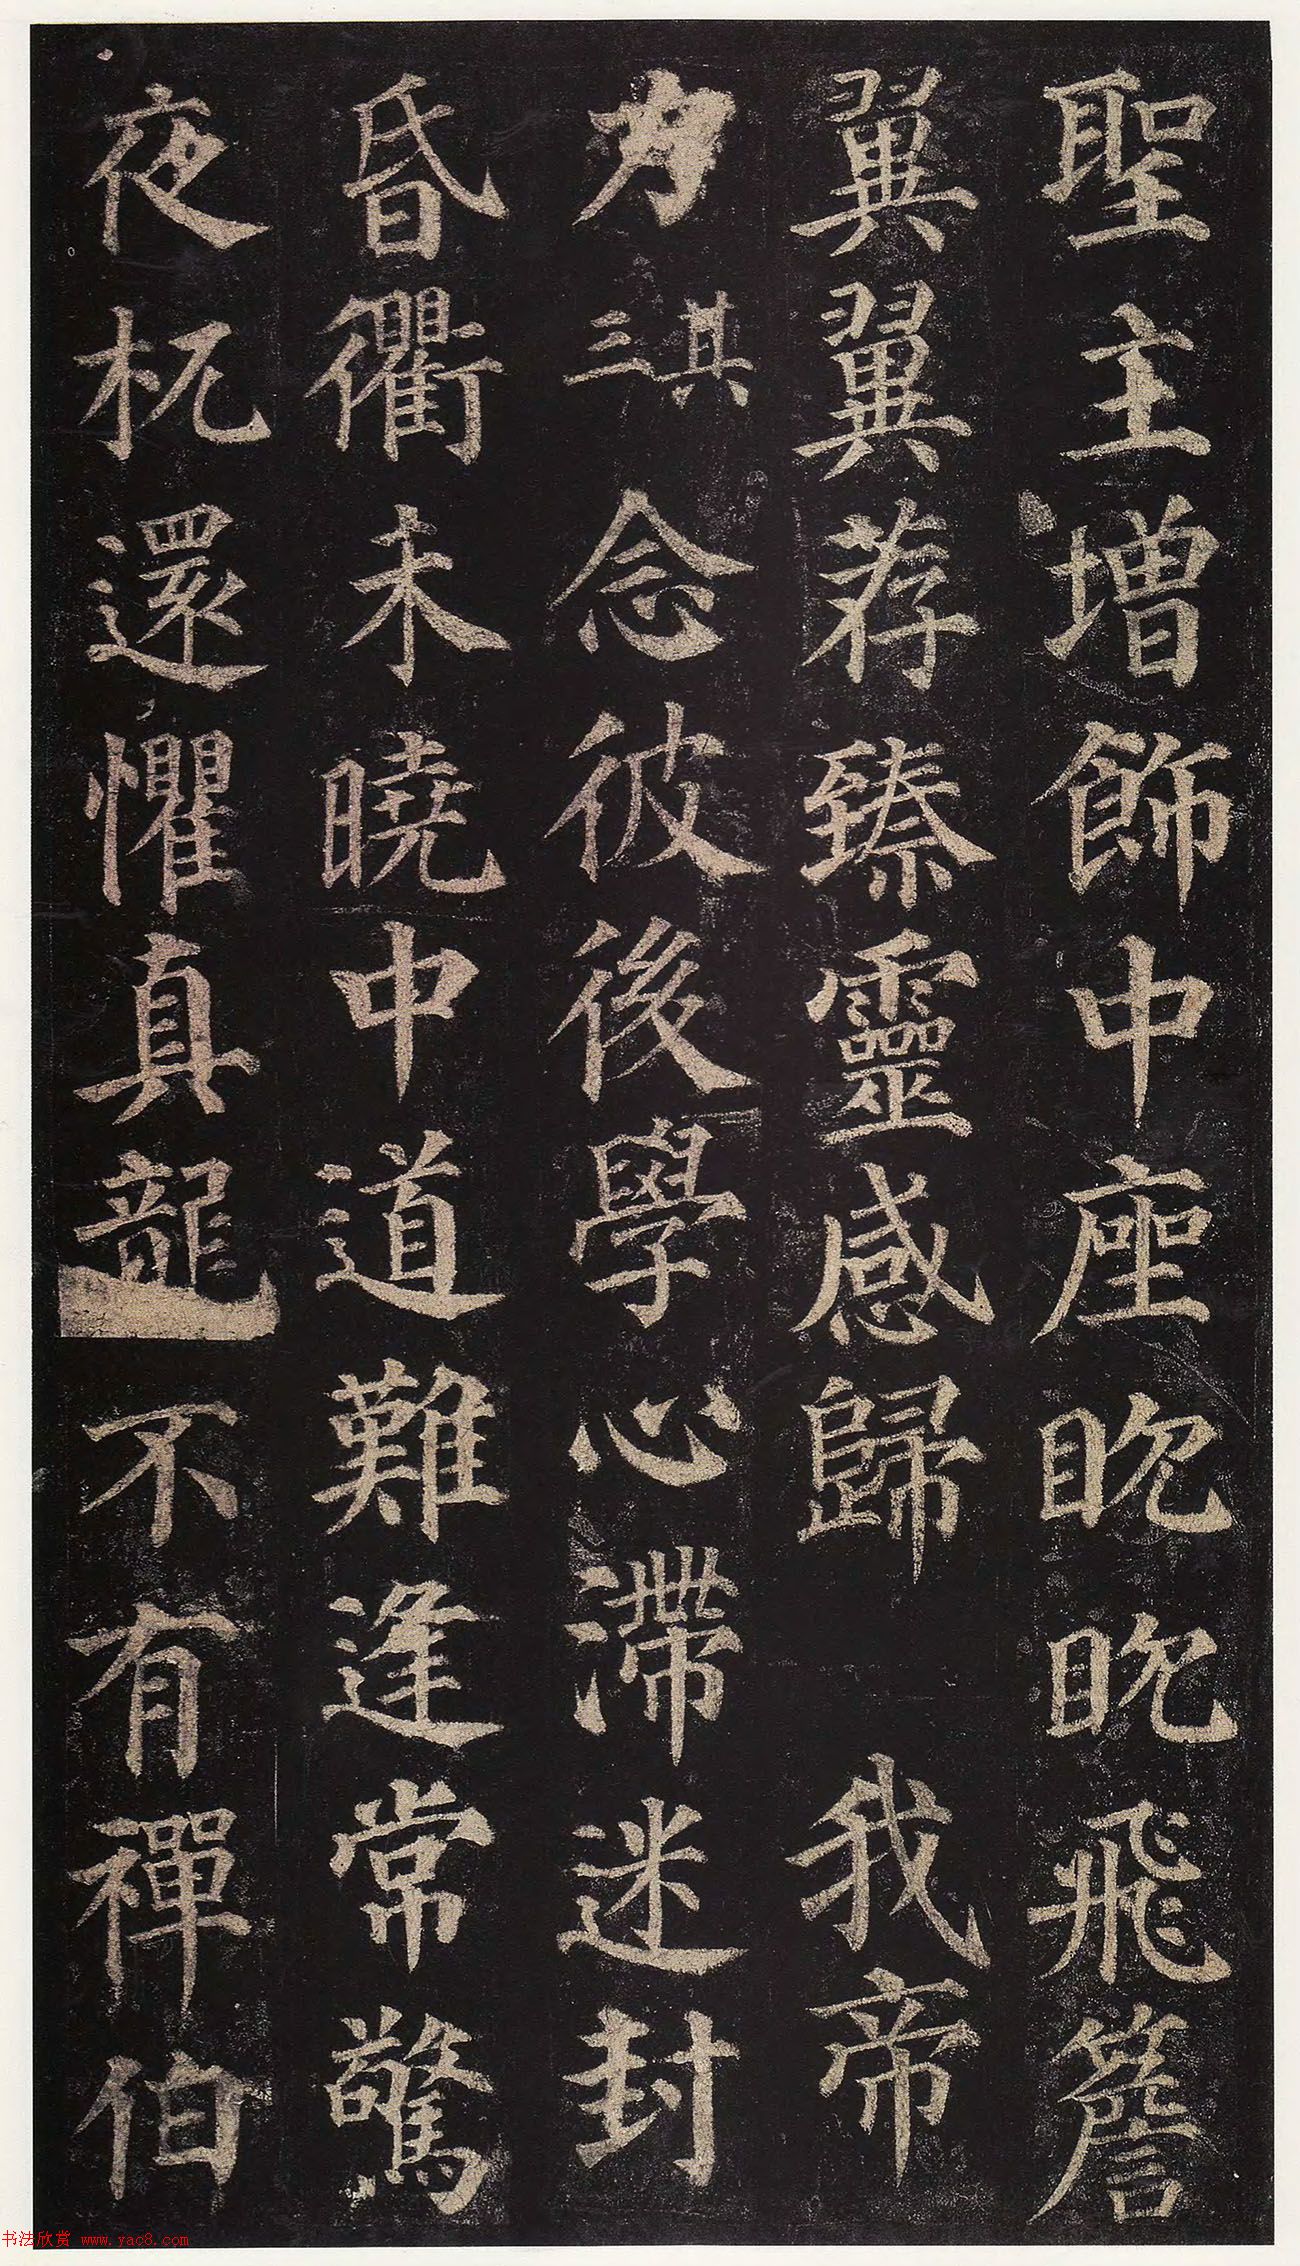 聖主增飾中座眈眈飛簷
翼翼荐臻靈感歸我帝
力其三念彼後學心滯迷封
昏衢未曉中道難逢常驚
夜杌還懼真龍不有禪伯
书法欣赏 www.yac8.com